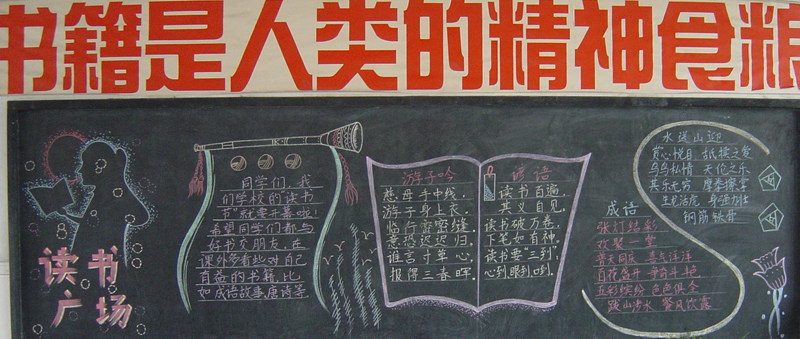 书籍是人类的精神食粮
读书
广场
同学们，我
们学校的读书
节"就要开幕啦！
希望同学们都与
好书交朋友，在
课外多看些对自己
有益的书籍，比
如成语故事、唐诗等
游子吟
慈母手中线，
游子身上衣。
临行密密缝，
意恐迟迟归。
谁言寸草心，
报得三春晖。
谚语
读书百遍，
其义自见。
读书破万卷，
下笔如有神。
读书要"三到"，
心到眼到口到。
成语
张灯结彩
欢聚一堂
普天同庆 喜气洋洋
百花盛开
五彩缤纷 色色俱全
跋山涉水 餐风饮露
水送山迎
赏心悦目 舐犊之爱
乌鸟私情 天伦之乐
其乐无穷 摩拳擦掌
生龙活虎 身强力壮
钢筋铁骨